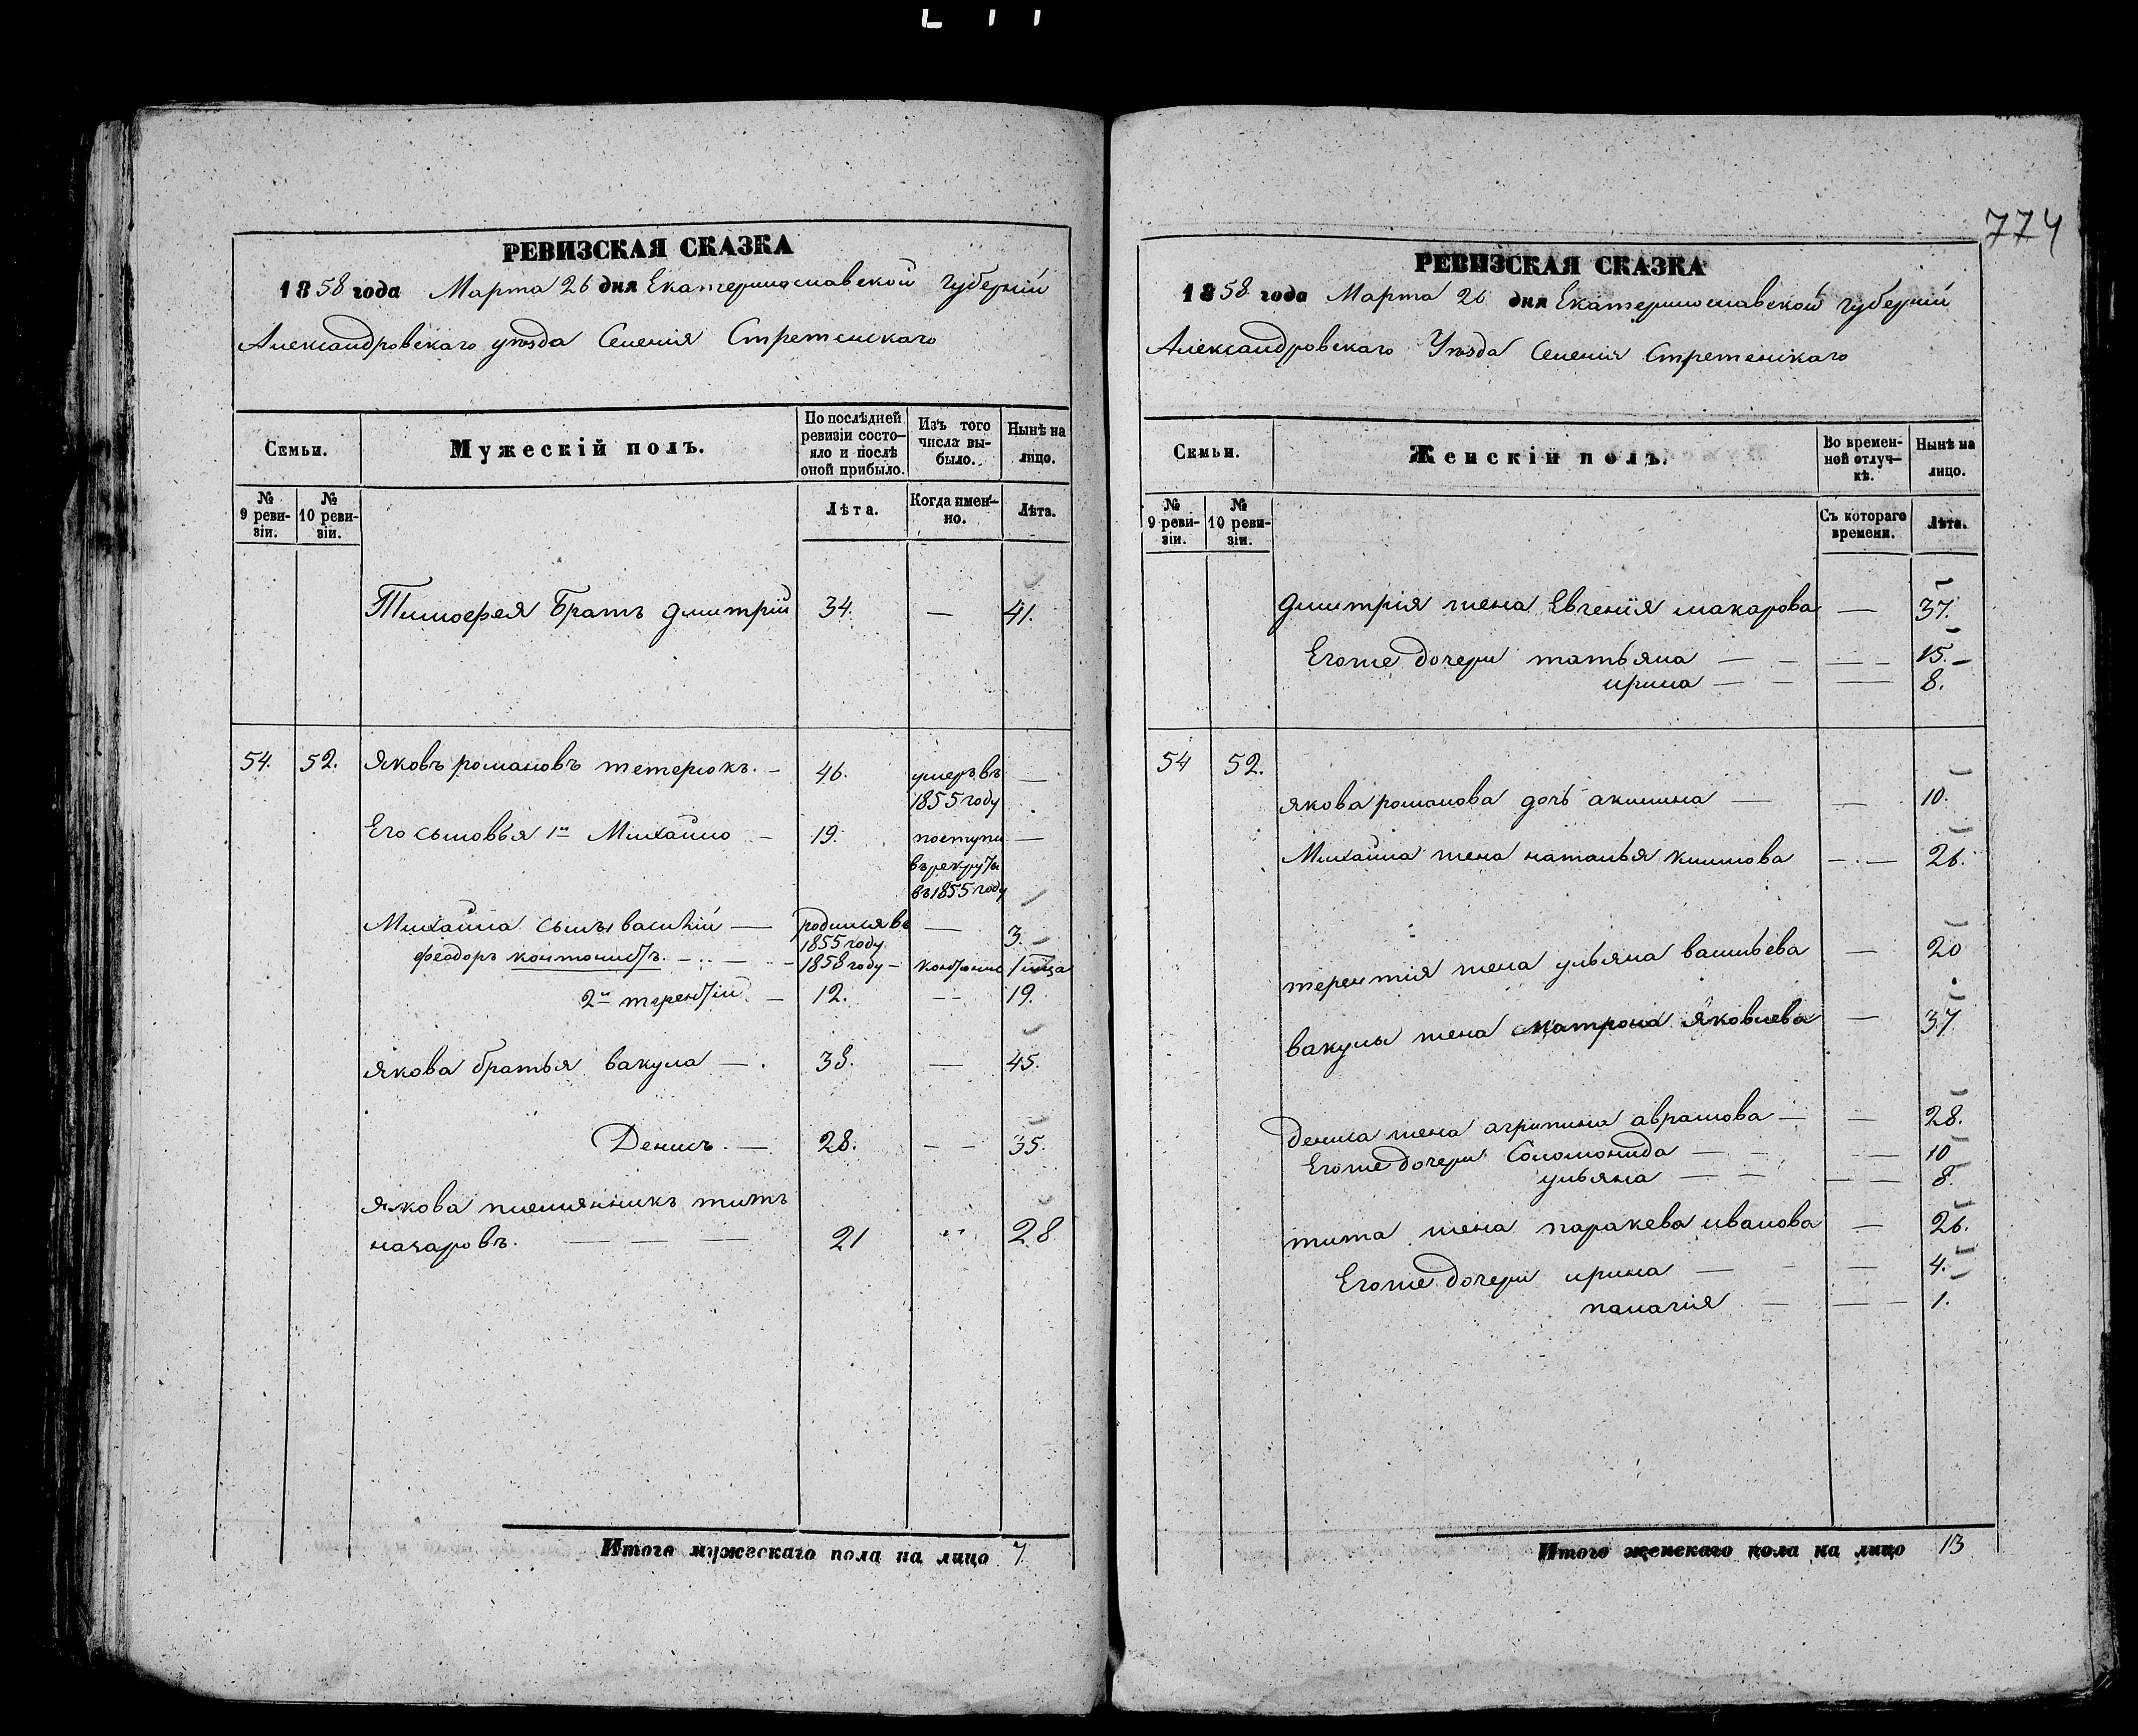 РЕВИЗСКАЯ СКАЗКА
1858 года Марта 26 дня Екатеринославской губерніи
Александровскаго уѣзда Селенія Стретенскаго
Семьи.
Мужескій полъ.
По послѣдней ревизіи состо-
яло и послѣ оной прибыло.
Изъ того числа вы-
было.
Нынѣ на лицо.
№ 9 реви-
зіи.
№ 10 реви-
зіи.
Лѣта.
Когда имен-
но.
Лѣта.
Тимофея Братъ дмитрій 34. — 41.
54. 52. Яковъ романовъ тетерюкъ. — 46. умеръ въ —
1855 году
Его сыновья 1й Михайло — 19. поступи —
въ рекруты
въ 1855 году
Михайла сынъ василій — родился въ — 3.
1855 году
феодоръ кантонистъ. — 1858 году —
2й терентій — 12. — 19.
якова братья вакула — 38. — 45.
Денисъ. — 28. — — 35.
якова племянникъ титъ
назаровъ. — — — 21 " 28
Итого мужескаго пола на лицо 7.
774
РЕВИЗСКАЯ СКАЗКА
1858 года Марта 26 дня Екатеринославской губерніи
Александровскаго Уѣзда Селенія Стретенскаго
Семьи.
Женскій полъ.
Во времен-
ной отлуч-
кѣ.
Нынѣ на лицо.
№ 9 реви-
зіи.
№ 10 реви-
зіи.
Съ котораго времени.
Лѣта.
дмитрія жена Евгенія макарова — 37.
Егоже дочери татьяна — — — 15.
ирина — — — 8.
54 52.
якова романова дочь акилина — — 10.
Михайла жена наталья климова — — 26.
терентія жена ульяна васильева — 20
вакулы жена матрона Яковлева — 37
дениса жена агрипина аврамова — — 28.
Егоже дочери Соломонида — — 10
ульяна — — — — 8.
тита жена паракева иванова — 26.
Егоже дочери ирина — — 4.
палагія — — — 1.
Итого женскаго пола на лицо 13